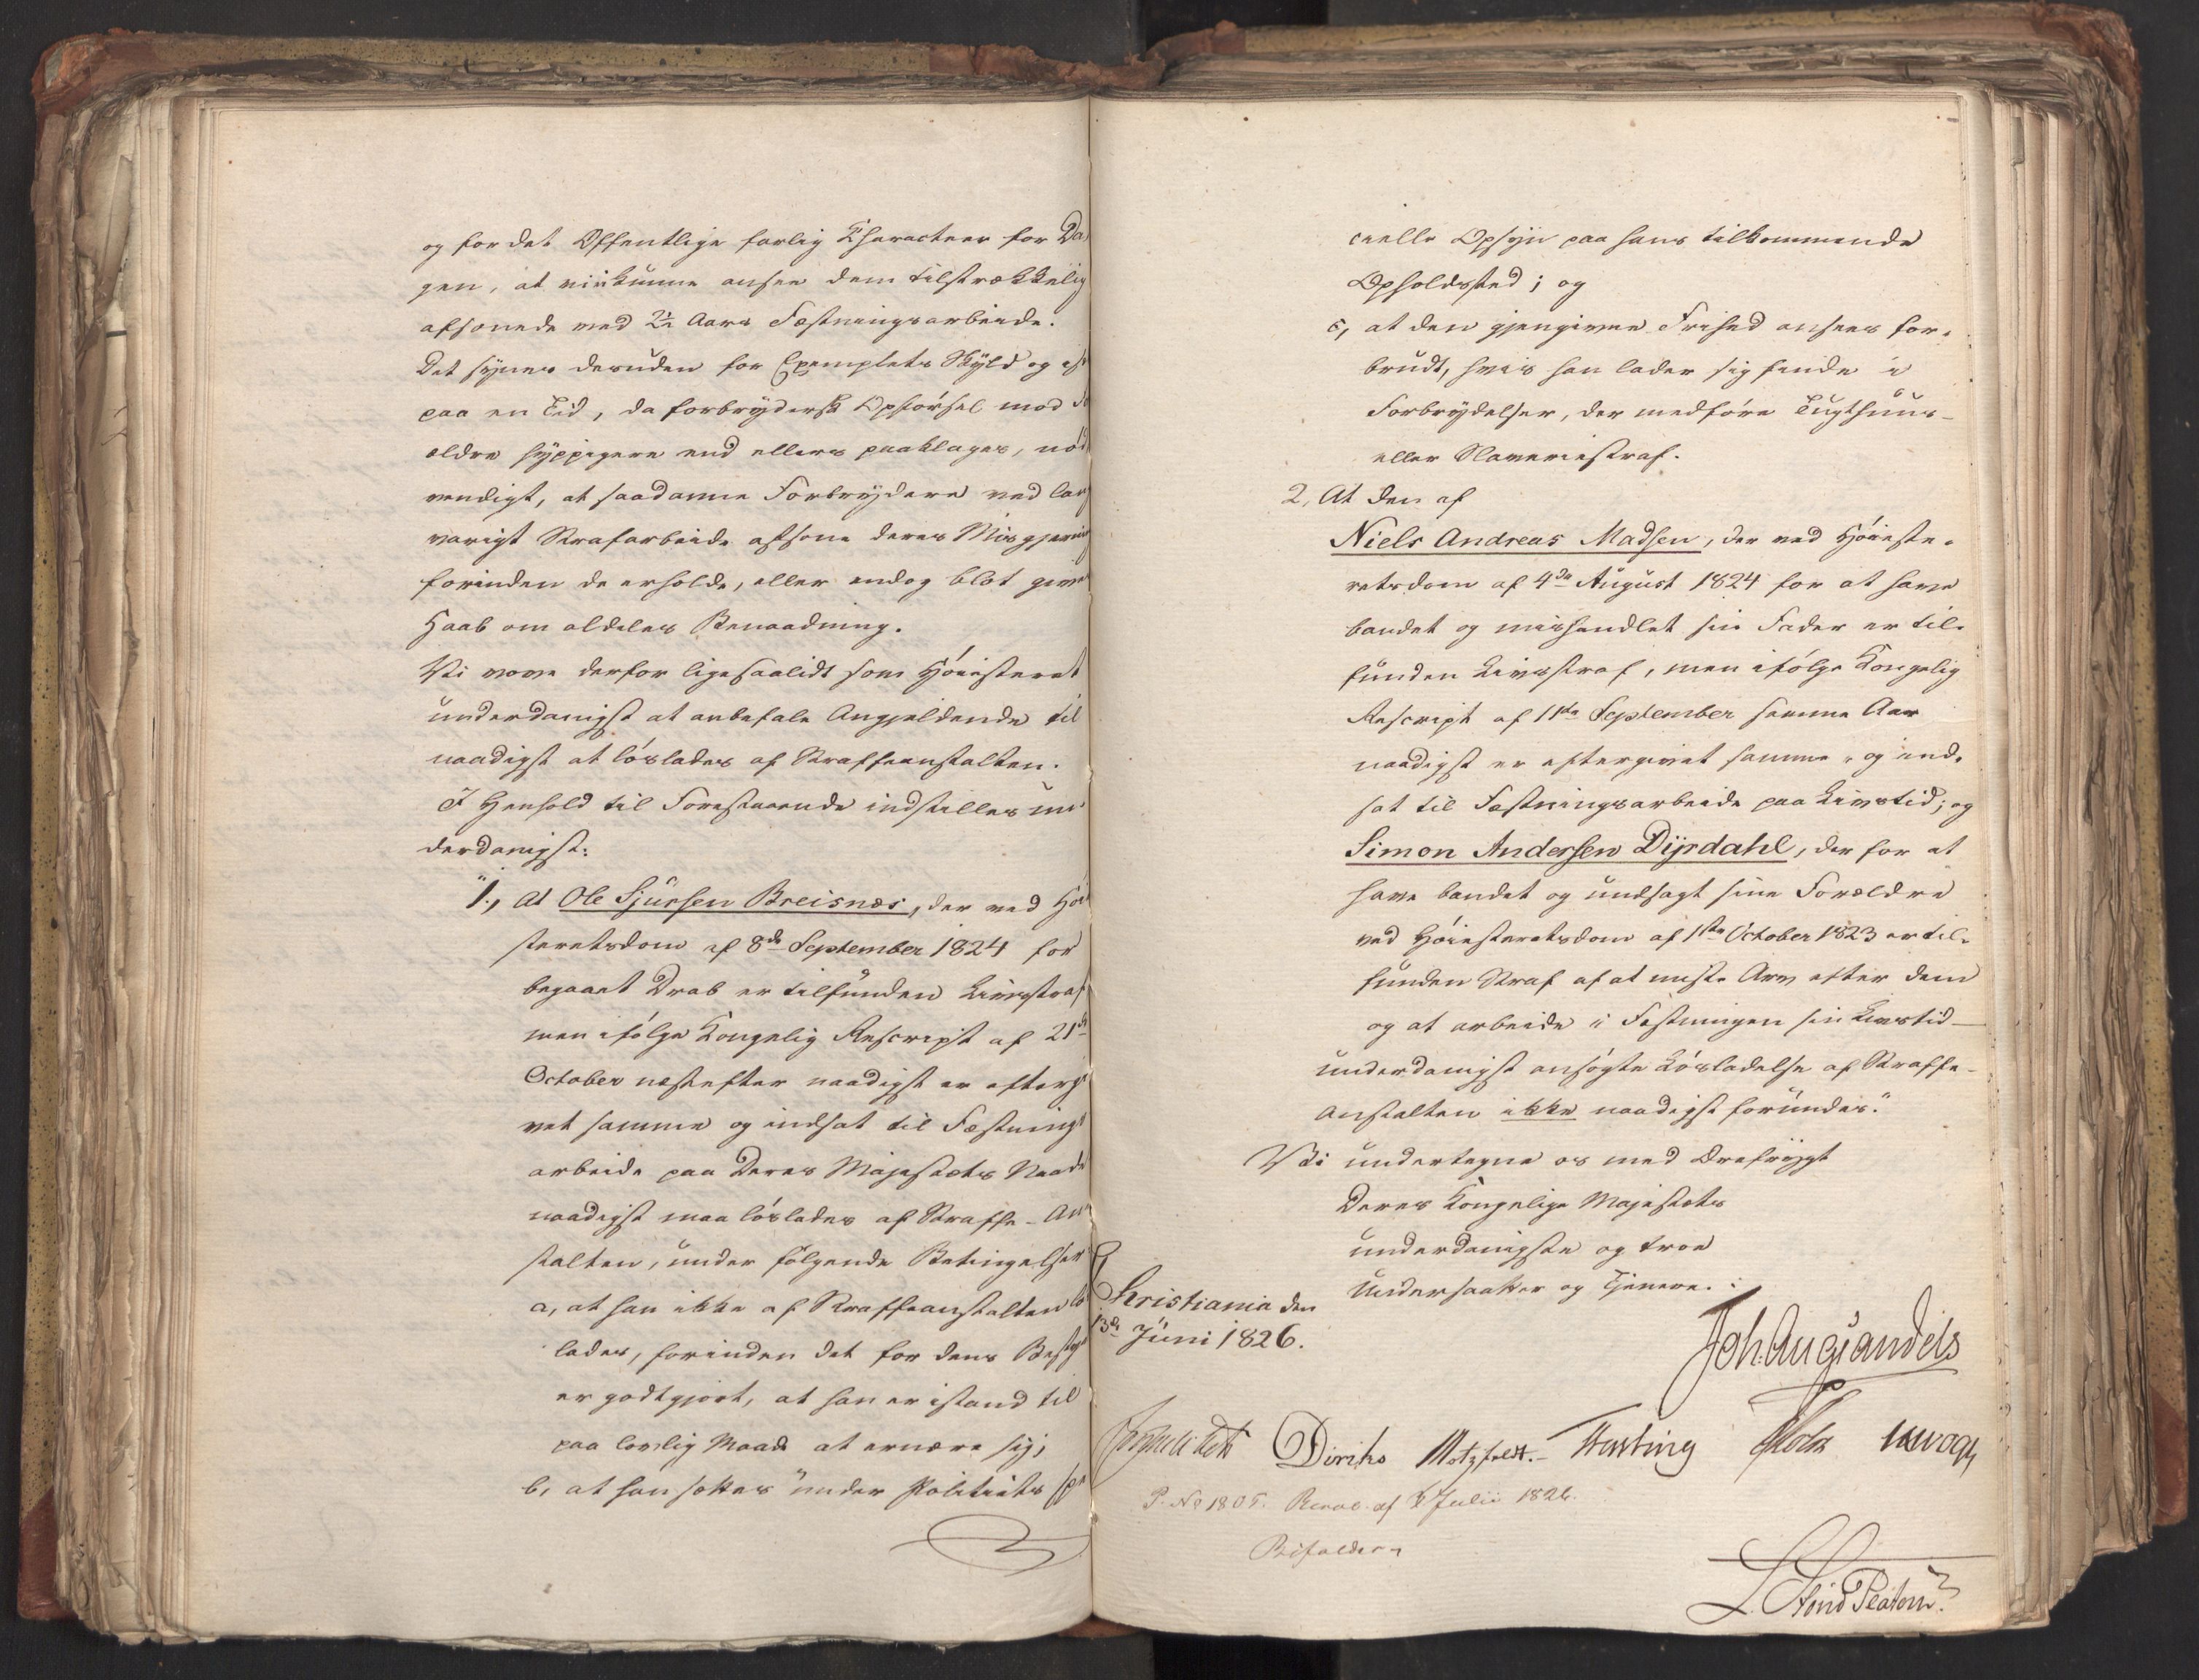 og for det Offentlige farlig Characteer for Da-
gen, at vi kunne ansee dem tilstrækkelig
afsonede med 2½ Aars Fæstningsarbeide.
Det synes desuden for Exemplets Skyld og
paa en Tid, da forbrydersk Opførsel mod
ældre hyppigere end ellers paaklages, nød
vendigt, at saadanne Forbrydere ved lang
varigt Strafarbeide afsone deres Misgjerning
forinden de erholde, eller endog blot gives
Haab om aldeles Benaadning.
Vi vove derfor ligesaalidt som Høiesteret
underdanigst at anbefale Angjeldende til
naadigst at løslades af Straffeanstalten.
I Henhold til Forestaaende indstilles un
derdanigst:
"1., At Ole Sjursen Breisnæs, der ved Høie
steretsdom af 8de September 1824 for
begaaet Drab er tilfunden Livsstraf
men ifølge Kongelig Rescript af 21de
October næstefter naadigst er eftergi
vet samme og indsat til Fæstnings
arbeide paa Deres Majestæts Naade
naadigst maa løslades af Straffe-An
stalten, under følgende Betingelser
a, at han ikke af Straffeanstalten løs
lades, forinden det for dens Besty
er godtgjort, at han er istand til
paa lovlig Maade at ernære sig;
b, at han sættes under Politiets spe
cielle Opsyn paa hans tilkommende
Opholdssted; og
c, at den gjengivne Frihed ansees for-
brudt, hvis han lader sig finde i
Forbrydelser, der medføre Tugthuus-
eller Slaveriestraf.
2, At den af
Niels Andreas Madsen, der ved Høieste-
retsdom af 4de August 1824 for at have
bandet og mishandlet sin Fader er til-
funden Livsstraf, men ifølge Kongelig
Rescript af 11te September samme Aar
naadigst er eftergivet samme, og ind-
sat til Fæstningsarbeide paa Livstid; og
Simon Andersen Dijpdahl, der for at
have bandet og undsagt sine Forældre
ved Høiesteretsdom af 1ste October 1823 er til-
funden Straf af at miste Arv efter dem
og at arbeide i Fæstningen sin Livstid-
underdanigst ansøgte Løsladelse af Straffe-
Anstalten ikke naadigst forundes."
Vi undertegne os med Ærefrygt
Deres Kongelige Majestæts
underdanigste og troe
Undersaatter og Tjenere.
Christiania den
13de Juni 1826.
Joh. Aug: Sandels
Diriks Motzfeldt. Fasting
P. No 1805. Resol. af Julii 1826.
Bifaldes